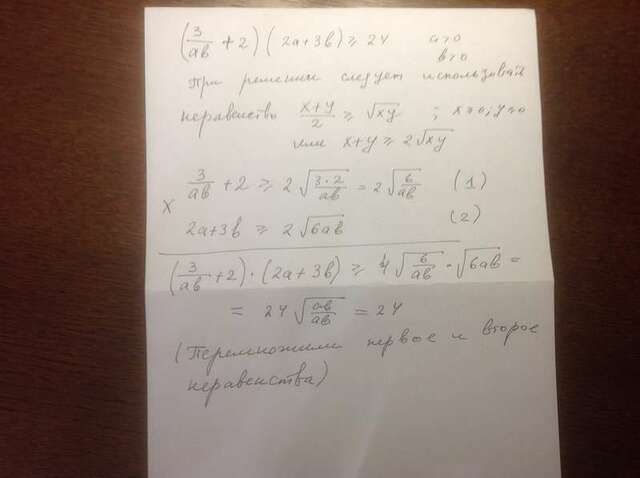 (3/ab + 2)(2a+3b) ≥ 24 a>0
b>0
При решении следует использовать
неравенство x+y/2 ≥ √xy ; x≥0; y≥0
или x+y ≥ 2√xy
3/ab + 2 ≥ 2√(3·2/ab) = 2√(6/ab) (1)
x
2a+3b ≥ 2√6ab (2)
(3/ab + 2)·(2a+3b) ≥ 4√(6/ab)·√6ab =
= 24√(ab/ab) = 24
(Перемножили первое и второе
неравенства)